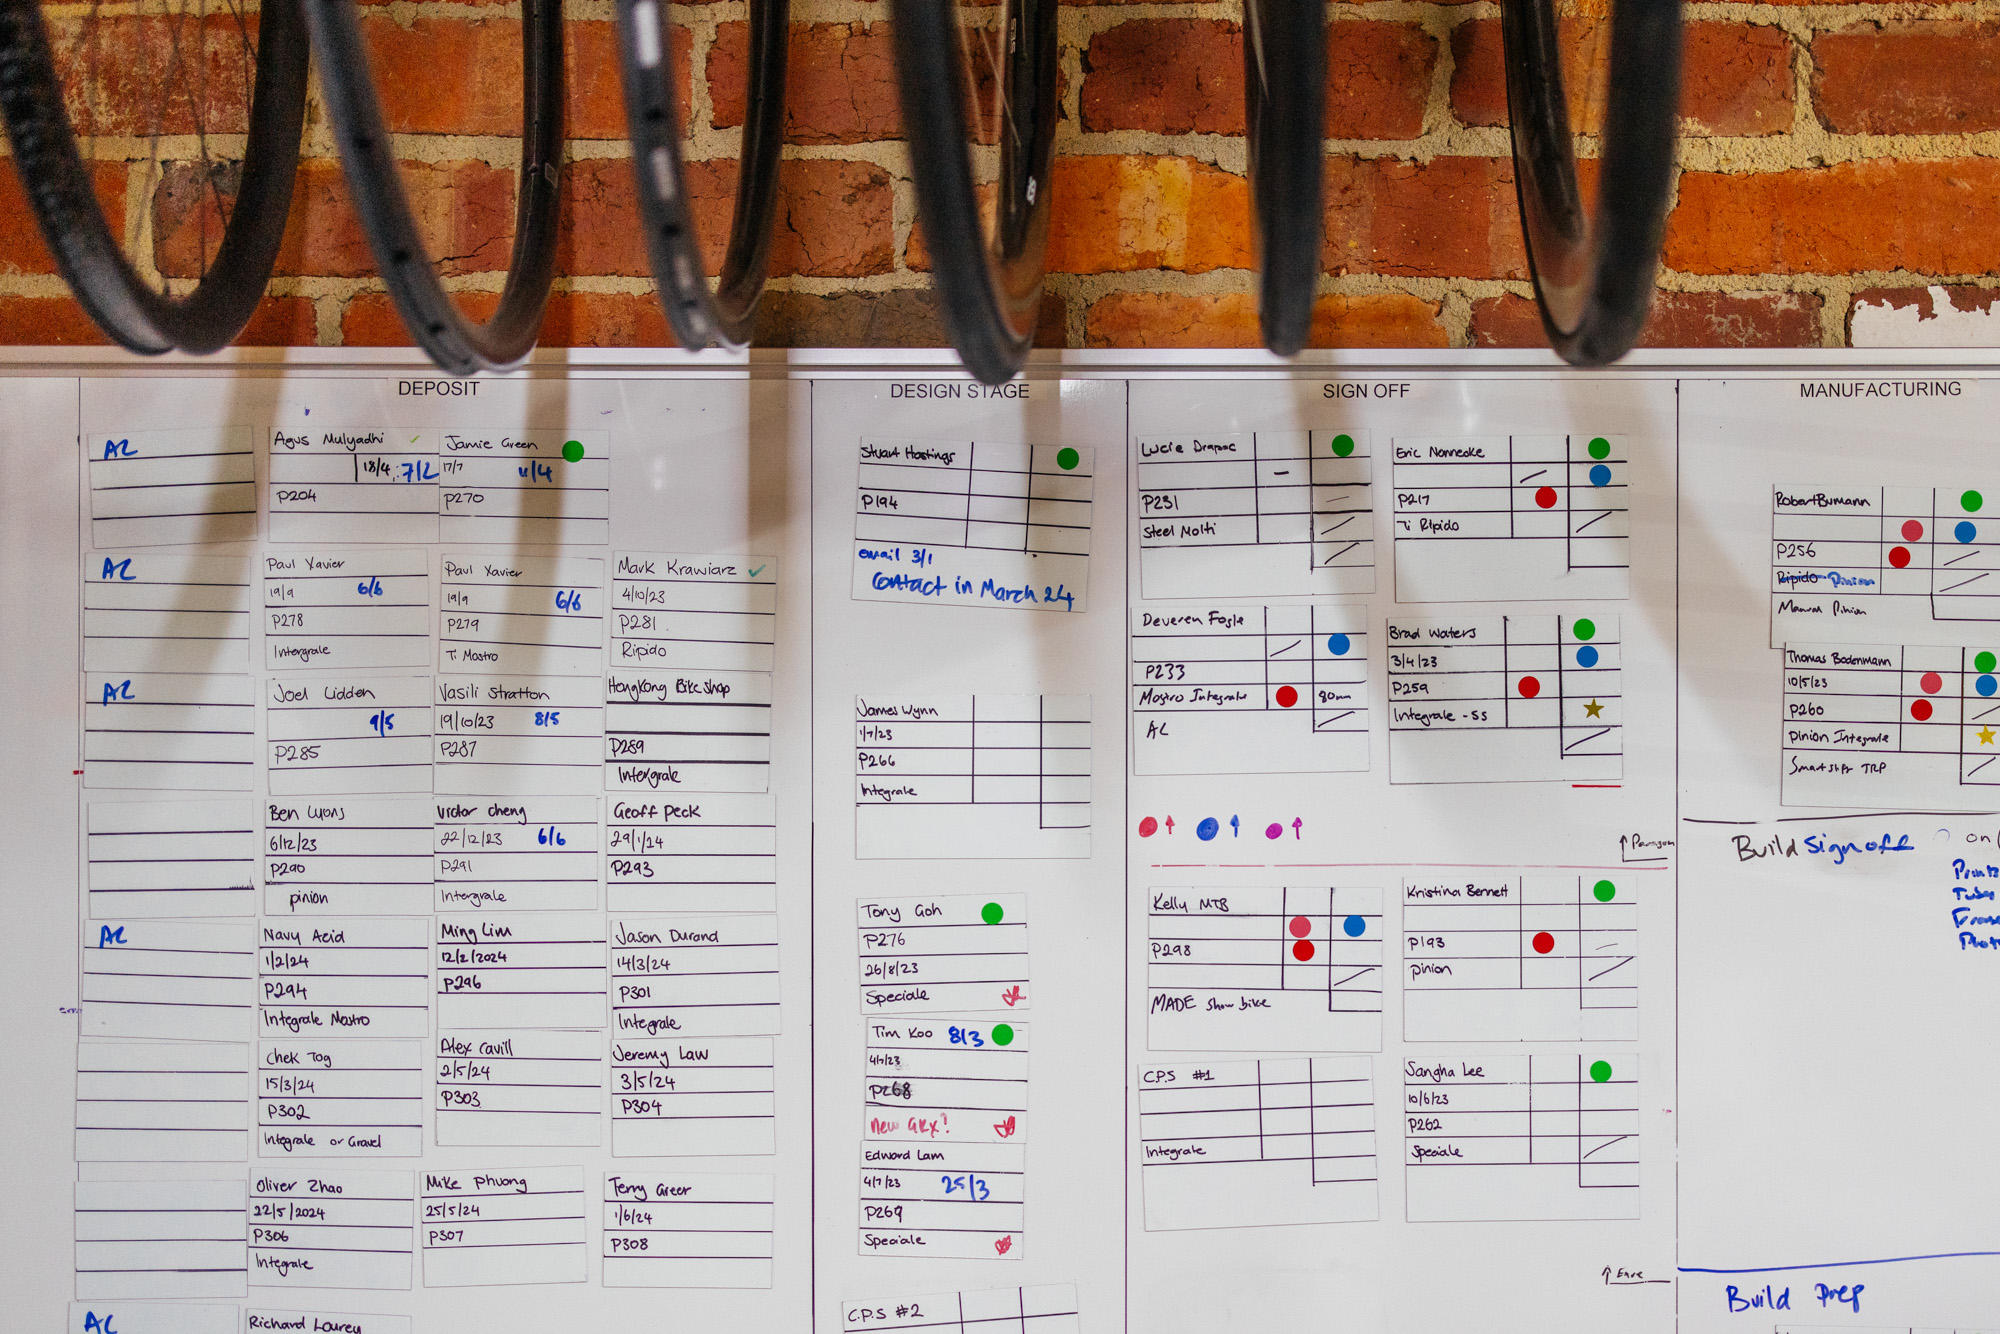 DEPOSIT
AL
Agus Mulyadhi
18/4, 7/2
P204
Jamie Green
17/7 4/4
P270
AL
Paul Xavier
19/9 6/6
P278
Intergrale
Paul Xavier
19/9 6/6
P279
Ti Mostro
Mark Krawiarz
4/10/23
P281
Ripido
AL
Joel Lidden
9/5
P285
Vasili Stratton
19/10/23 8/5
P287
HongKong Bikeshop
P289
Intergrale
Ben Lyons
6/12/23
P290
pinion
Victor cheng
22/12/23 6/6
P291
Intergrale
Geoff Peck
29/1/24
P293
AL
Navy Azid
1/2/24
P294
Integrale Mostro
Ming Lim
12/2/2024
P296
Jason Durand
14/3/24
P301
Integrale
Chek Tog
15/3/24
P302
Integrale or Gravel
Alex Cavill
2/5/24
P303
Jeremy Law
3/5/24
P304
Oliver Zhao
22/5/2024
P306
Integrale
Mike Phuong
25/5/24
P307
Terry Greer
1/6/24
P308
AL
Richard Lourey
DESIGN STAGE
Stuart Hastings
P194
email 3/1
Contact in March 24
James Wynn
1/7/23
P266
Integrale
Tony Goh
P276
26/8/23
Speciale
Tim Koo 8/3
4/7/23
P268
new GRX!
Edward Lam
4/7/23 25/3
P269
Speciale
C.P.S #2
SIGN OFF
Lucie Drapac
P231
Steel Molti
Eric Nonnecke
P217
Ti Ripido
Deveren Fogle
P233
Mostro Integrale 80mm
AL
Brad Waters
3/4/23
P259
Integrale - SS
Paragon
Kelly MTB
P298
MADE show bike
Kristina Bennett
P193
pinion
C.P.S #1
Integrale
Sangha Lee
10/6/23
P262
Speciale
Enve
MANUFACTURING
Robert Bumann
P256
Ripido Pinion
Manual Pinion
Thomas Bodenmann
10/5/23
P260
Pinion Integrale
Smart shift TRP
Build Sign off
Build Prep